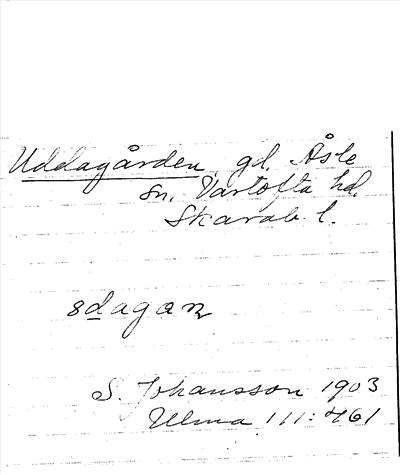 Uddagården, gd. Åsle
sn, Vartofta hd.
Skarab. l.
8dagan
S. Johansson 1903
Ulma 111:461